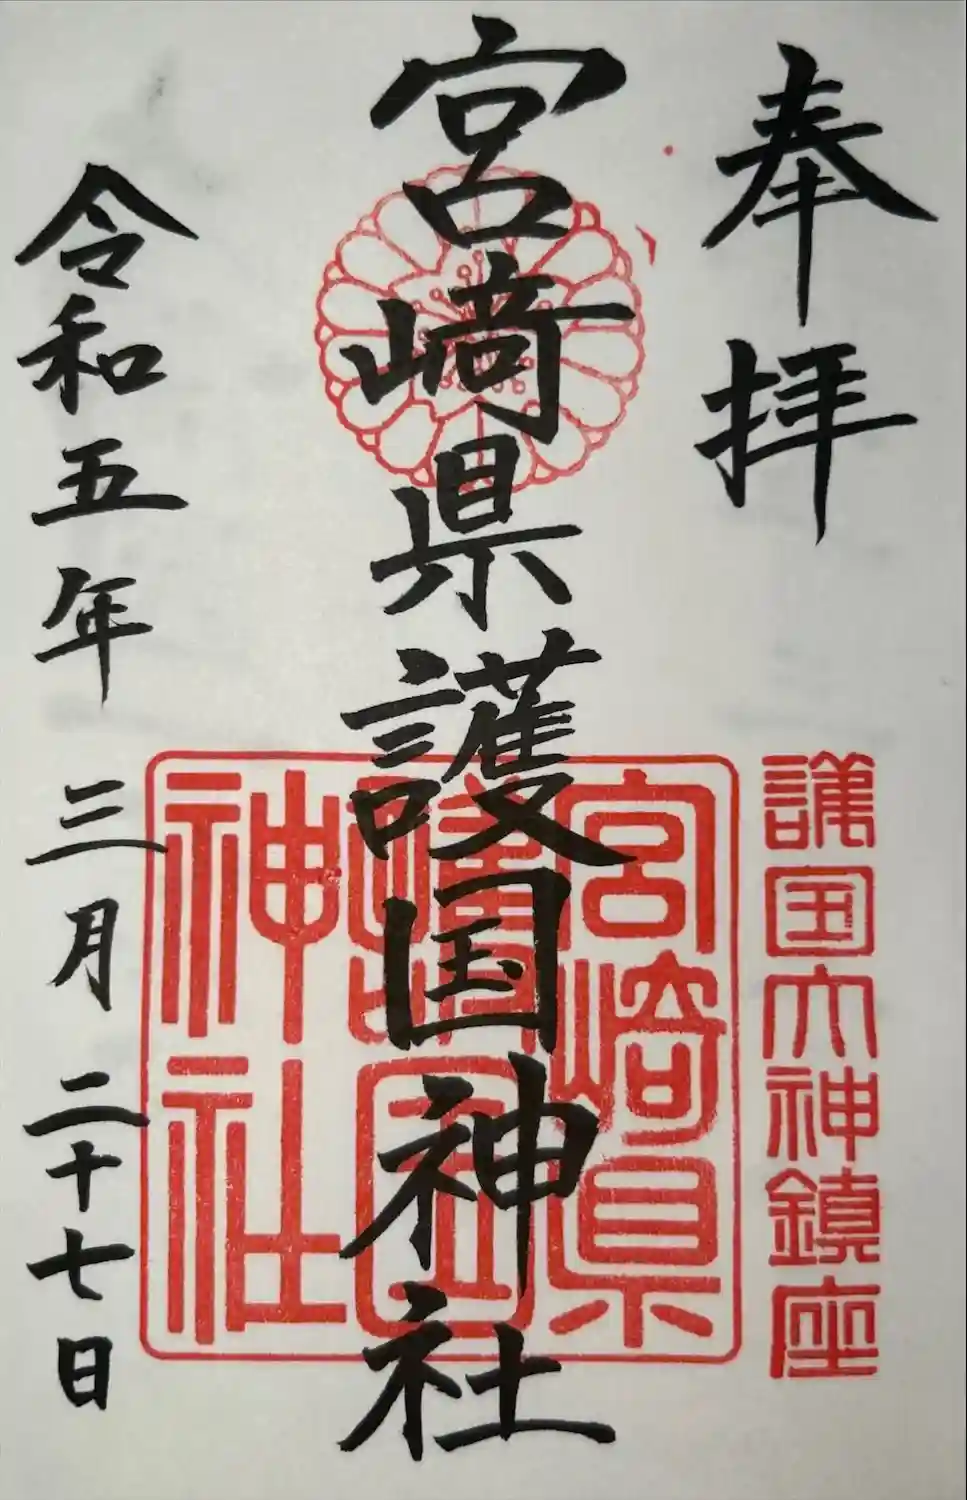 奉拝
護国大神鎮座
宮﨑県護国神社
宮崎県護国神社
令和五年三月二十七日